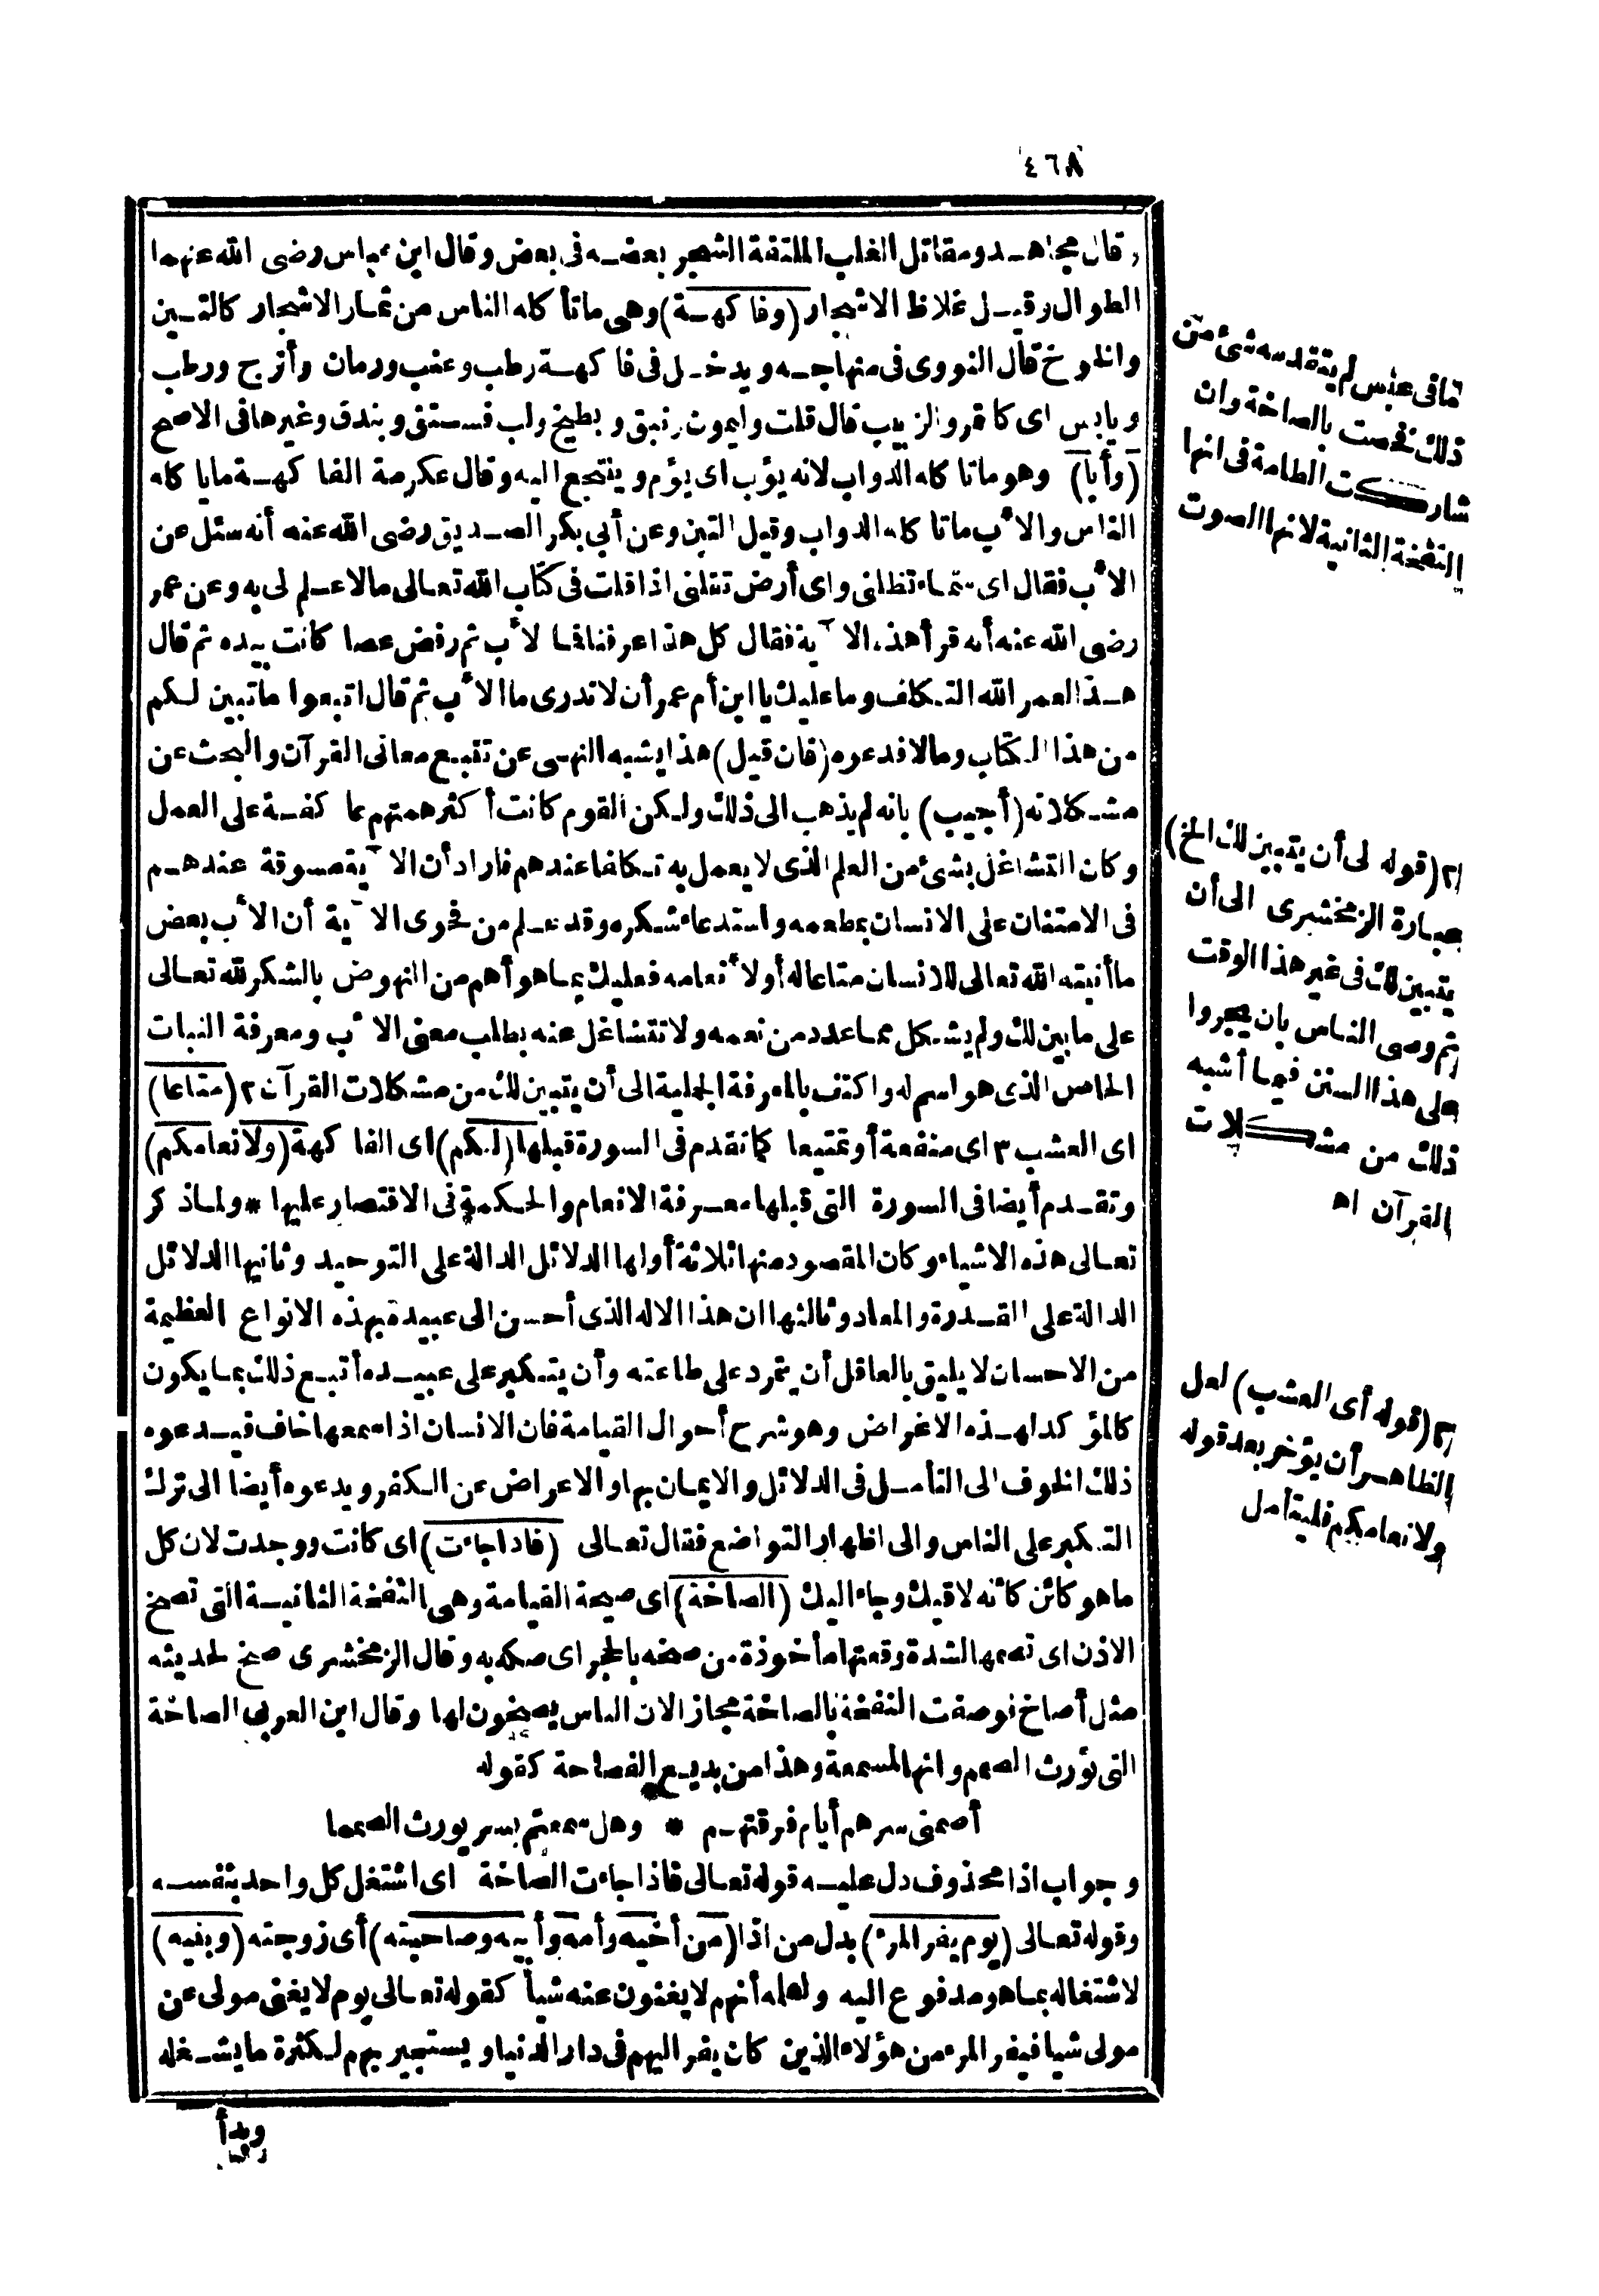 ٤٦٨
وقال مجاهد ومقاتل الغلب الملتفة الشجر بعضه فى بعض وقال ابن عباس رضى الله عنهما
الطوال وقيل غلاظ الاشجار (وفاكهة) وهى ما تأكله الناس من ثمار الاشجار كالتين
والخوخ قال النووى فى منهاجه ويدخل فى فاكهة رطب وعنب ورمان وأترج ورطب
ويابس اى كالتمر والزبيب قال قلت وليمون ونبق وبطيخ ولب فستق وبندق وغيرها فى الاصح
(وأبا) وهو ما تأكله الدواب لانه يؤب اى يؤم وينتجع اليه وقال عكرمة الفاكهة ما يأكله
الناس والأب ما تأكله الدواب وقيل التبن وعن أبى بكر الصديق رضى الله عنه أنه سئل عن
الأب فقال اى سماء تظلنى واى أرض تقلنى اذا قلت فى كتاب الله تعالى ما لا علم لى به وعن عمر
رضى الله عنه أنه قرأ هذه الآية فقال كل هذا عرفنا فما الأب ثم رفض عصا كانت بيده ثم قال
هذا لعمر الله التكلف وما عليك يا ابن أم عمر أن لا تدرى ما الأب ثم قال اتبعوا ما تبين لكم
من هذا الكتاب وما لا فدعوه (فان قيل) هذا يشبه النهى عن تتبع معانى القرآن والبحث عن
مشكلاته (أجيب) بانه لم يذهب الى ذلك ولكن القوم كانت أكثر همتهم عاكفة على العمل
وكان التشاغل بشئ من العلم الذى لا يعمل به تكلفا عندهم فاراد أن الآية مسوقة عندهم
فى الامتنان على الانسان بمطعمه واستدعاء شكره وقد علم من فحوى الآية أن الأب بعض
ما أنبته الله تعالى للانسان متاعا له أو لأنعامه فعليك بما هو أهم من النهوض بالشكر لله تعالى
على ما بين لك ولم يشكل مما عدد من نعمه ولا تتشاغل عنه بطلب معنى الأب ومعرفة النبات
الخاص الذى هو اسم له واكتف بالمعرفة الجملية الى أن يتبين لك من مشكلات القرآن ٢ (متاعا)
اى العشب ٣ اى منفعة أو تمتيعا كما تقدم فى السورة قبلها (لكم) اى الفاكهة (ولانعامكم)
وتقدم أيضا فى السورة التى قبلها معرفة الانعام والحكمة فى الاقتصار عليها * ولما ذكر
تعالى هذه الاشياء وكان المقصود منها ثلاثة أولها الدلائل الدالة على التوحيد وثانيها الدلائل
الدالة على القدرة والمعاد وثالثها ان هذا الاله الذى أحسن الى عبيده بهذه الانواع العظيمة
من الاحسان لا يليق بالعاقل أن يتمرد على طاعته وأن يتكبر على عبيده أتبع ذلك بما يكون
كالمؤكد لهذه الاغراض وهو شرح أحوال القيامة فان الانسان اذا سمعها خاف فيدعوه
ذلك الخوف الى التأمل فى الدلائل والايمان بها والاعراض عن الكفر ويدعوه أيضا الى ترك
التكبر على الناس والى اظهار التواضع فقال تعالى (فاذا جاءت) اى كانت ووجدت لان كل
ما هو كائن كأنه لاقيك وجاء اليك (الصاخة) اى صيحة القيامة وهى النفخة الثانية التى تصخ
الاذن اى تصمها لشدة وقعتها مأخوذة من صخه بالحجر اى صكه به وقال الزمخشرى صخ لحديثه
مثل أصاخ فوصفت النفخة بالصاخة مجازا لان الناس يصخون لها وقال ابن العربى الصاخة
التى تؤرث الصمم وانها لمسمعة وهذا من بديع الفصاحة كقوله
أصمنى سرهم أيام فرقتهم * وهل سمعتم بسر يورث الصمما
وجواب اذا محذوف دل عليه قوله تعالى فاذا جاءت الصاخة اى اشتغل كل واحد بنفسه
وقوله تعالى (يوم يفر المرء) بدل من اذا (من أخيه وأمه وأبيه وصاحبته) أى زوجته (وبنيه)
لاشتغاله بما هو مدفوع اليه ولعله أنهم لا يغنون عنه شيأ كقوله تعالى يوم لا يغنى مولى عن
مولى شيأ فيفر المرء من هؤلاء الذين كان يفر اليهم فى دار الدنيا ويستجير بهم لكثرة ما يشغله
وبدأ
ما فى عبس لم يتقدمه شئ من
ذلك فخصت بالصاخة وان
شاركت الطامة فى انها
النفخة الثانية لانها الصوت
٢ (قوله الى أن يتبين لك الخ)
عبارة الزمخشرى الى أن
يتبين لك فى غير هذا الوقت
ثم وصى الناس بان يجروا
على هذا السنن فيما أشبه
ذلك من مشكلات
القرآن اه
٣ (قوله أى العشب) لعل
الظاهر أن يؤخر بعد قوله
ولانعامكم فليتأمل